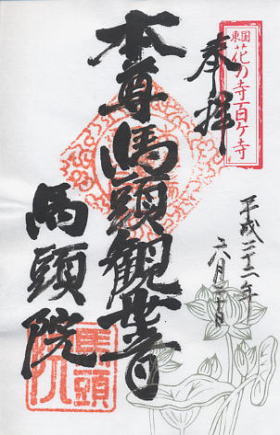 東国
花の寺百ヶ寺
奉拝
平成二十二年
六月
本尊馬頭観世音
馬頭院
馬頭院